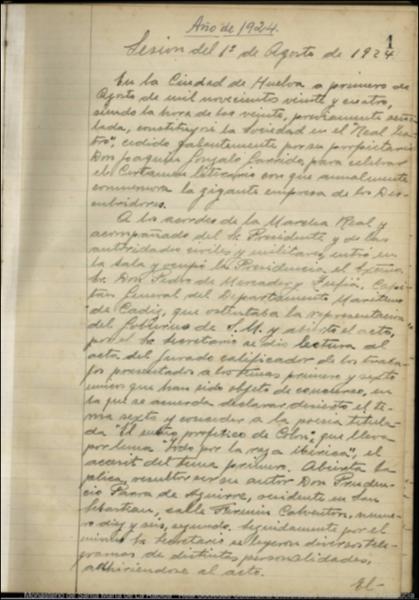 1
Año de 1924.
Sesion del 1º de Agosto de 1924
En la Ciudad de Huelva a primero de
Agosto de mil novecientos veinte y cuatro,
siendo la hora de las veinte, previamente seña-
lada, constituyose la Sociedad en el Real Tea-
tro", cedido galantemente por su propietario
Don Joaquin Gonzalo Garrido, para celebrar
el Certamen literario con que anualmente
conmemora la gigante empresa de los Des-
cubridores.
A los acordes de la Marcha Real y
acompañado del Sr. Presidente y de las
autoridades civiles y militares, entró en
la sala y ocupó la Presidencia el Excmo.
Sr. Don Pedro de Mercader y Zufia, Capi-
tan General del Departamento Maritimo
de Cadiz, que ostentaba la representacion
del Gobierno de S.M. y abierto el acto,
por el Sr. Secretario se dio lectura al
acta del Jurado calificador de los traba-
jos presentados a los temas primero y sexto
unicos que han sido objeto de concurso, en
la que se acuerda declarar desierto el te-
ma sexto y conceder a la poesia titula-
da "El sueño profetico de Colon", que lleva
por lema "Todo por la raza ibérica", el
accesit del tema primero. Abierta la
plica, resultó ser su autor Don Pruden-
cio Parra de Aguirre, residente en San
Sebastian, calle Fermin Calveton, nume-
ro diez y seis, segundo. Seguidamente por el
mismo Sr. Secretario se leyeron diversos tele-
gramas de distintas personalidades,
adhiriendose al acto.
El-